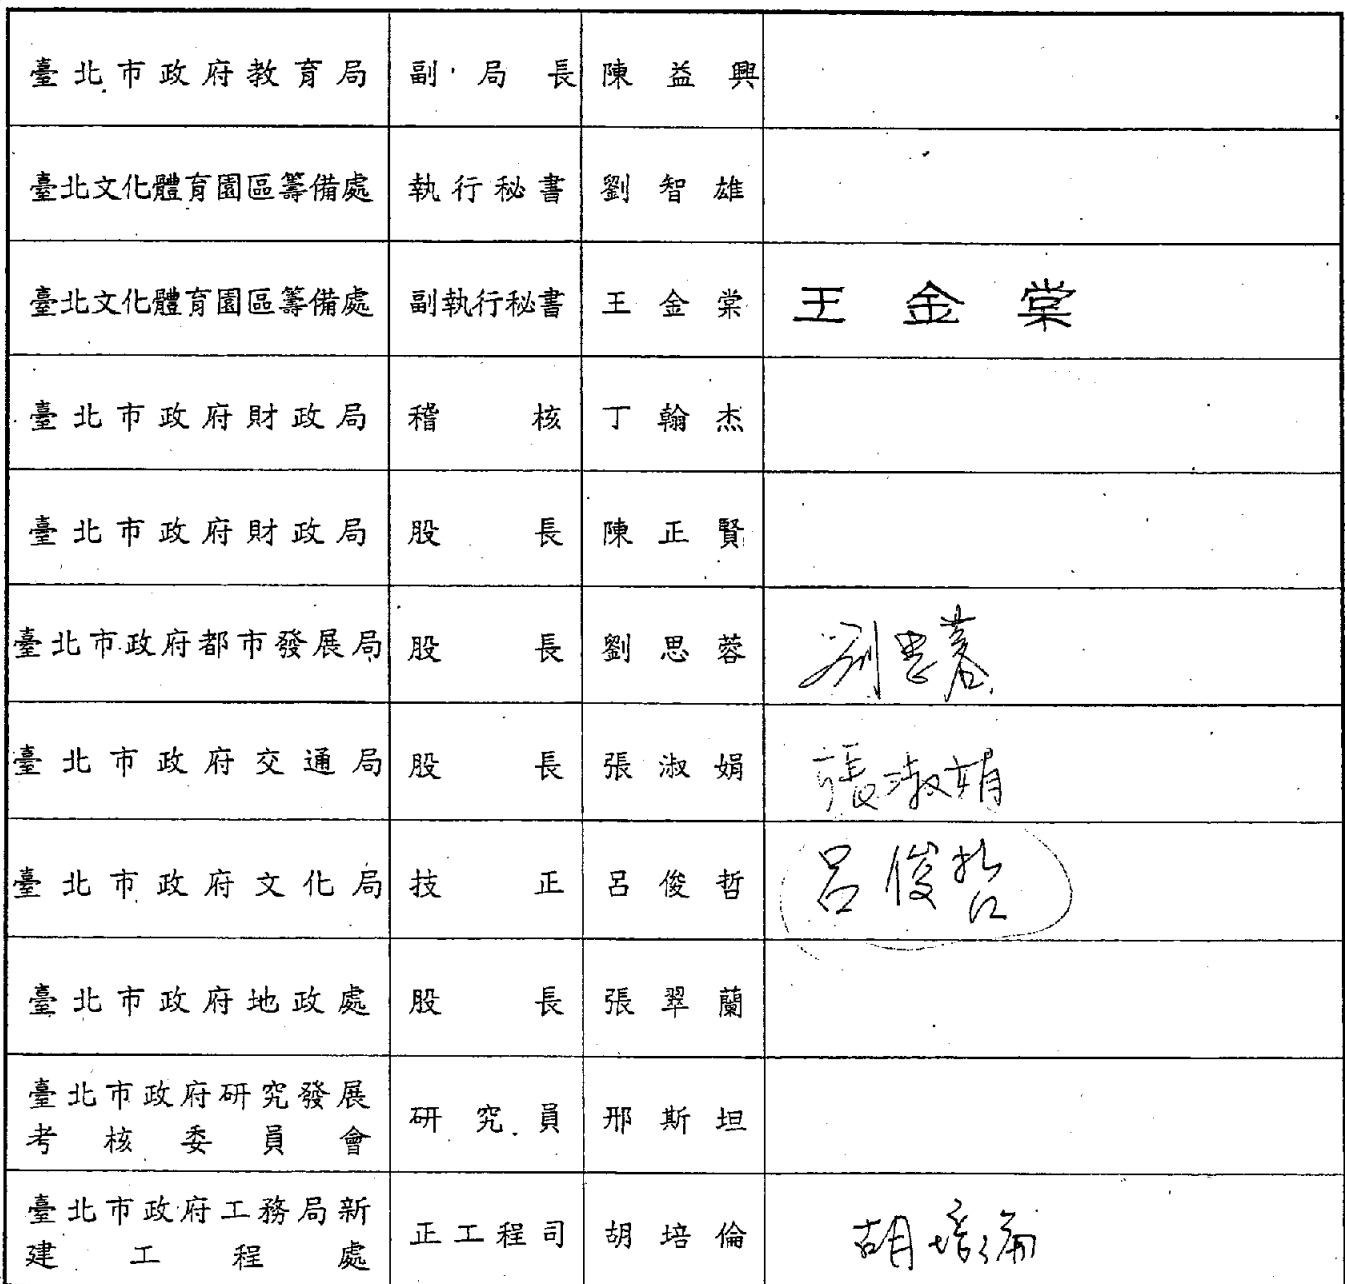 臺北市政府教育局 副局長 陳益興
臺北文化體育園區籌備處 執行秘書 劉智雄
臺北文化體育園區籌備處 副執行秘書 王金棠 王金棠
臺北市政府財政局 稽核 丁翰杰
臺北市政府財政局 股長 陳正賢
臺北市政府都市發展局 股長 劉思蓉 劉思蓉
臺北市政府交通局 股長 張淑娟 張淑娟
臺北市政府文化局 技正 呂俊哲 呂俊哲
臺北市政府地政處 股長 張翠蘭
臺北市政府研究發展
考核委員會 研究員 邢斯坦
臺北市政府工務局新
建工程處 正工程司 胡培倫 胡培倫